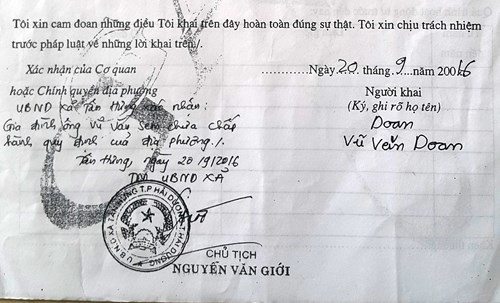 Tôi xin cam đoan những điều Tôi khai trên đây hoàn toàn đúng sự thật. Tôi xin chịu trách nhiệm
trước pháp luật về những lời khai trên./.
Xác nhận của Cơ quan
hoặc Chính quyền địa phương
UBND xã Tân Hưng xác nhận:
Gia đình ông Vũ Văn Sem chưa chấp
hành quy định của địa phương./.
Tân Hưng, ngày 20/9/2016
TM UBND XÃ
U.B.N.D XÃ TÂN HƯNG T.P HẢI DƯƠNG T. HẢI DƯƠNG
CHỦ TỊCH
NGUYỄN VĂN GIỚI
Ngày 20. tháng .9....năm 20016
Người khai
(Ký, ghi rõ họ tên)
Doan
Vũ Văn Doan